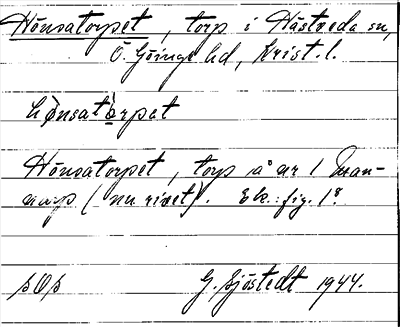 Hönsatorpet, torp i Hästveda sn,
Ö. Göinge hd, Krist. l.
hönsatårpet
Hönsatorpet, torp å nr 1 Man-
narp (nu rivet). Ek.
G. Sjöstedt 1944.